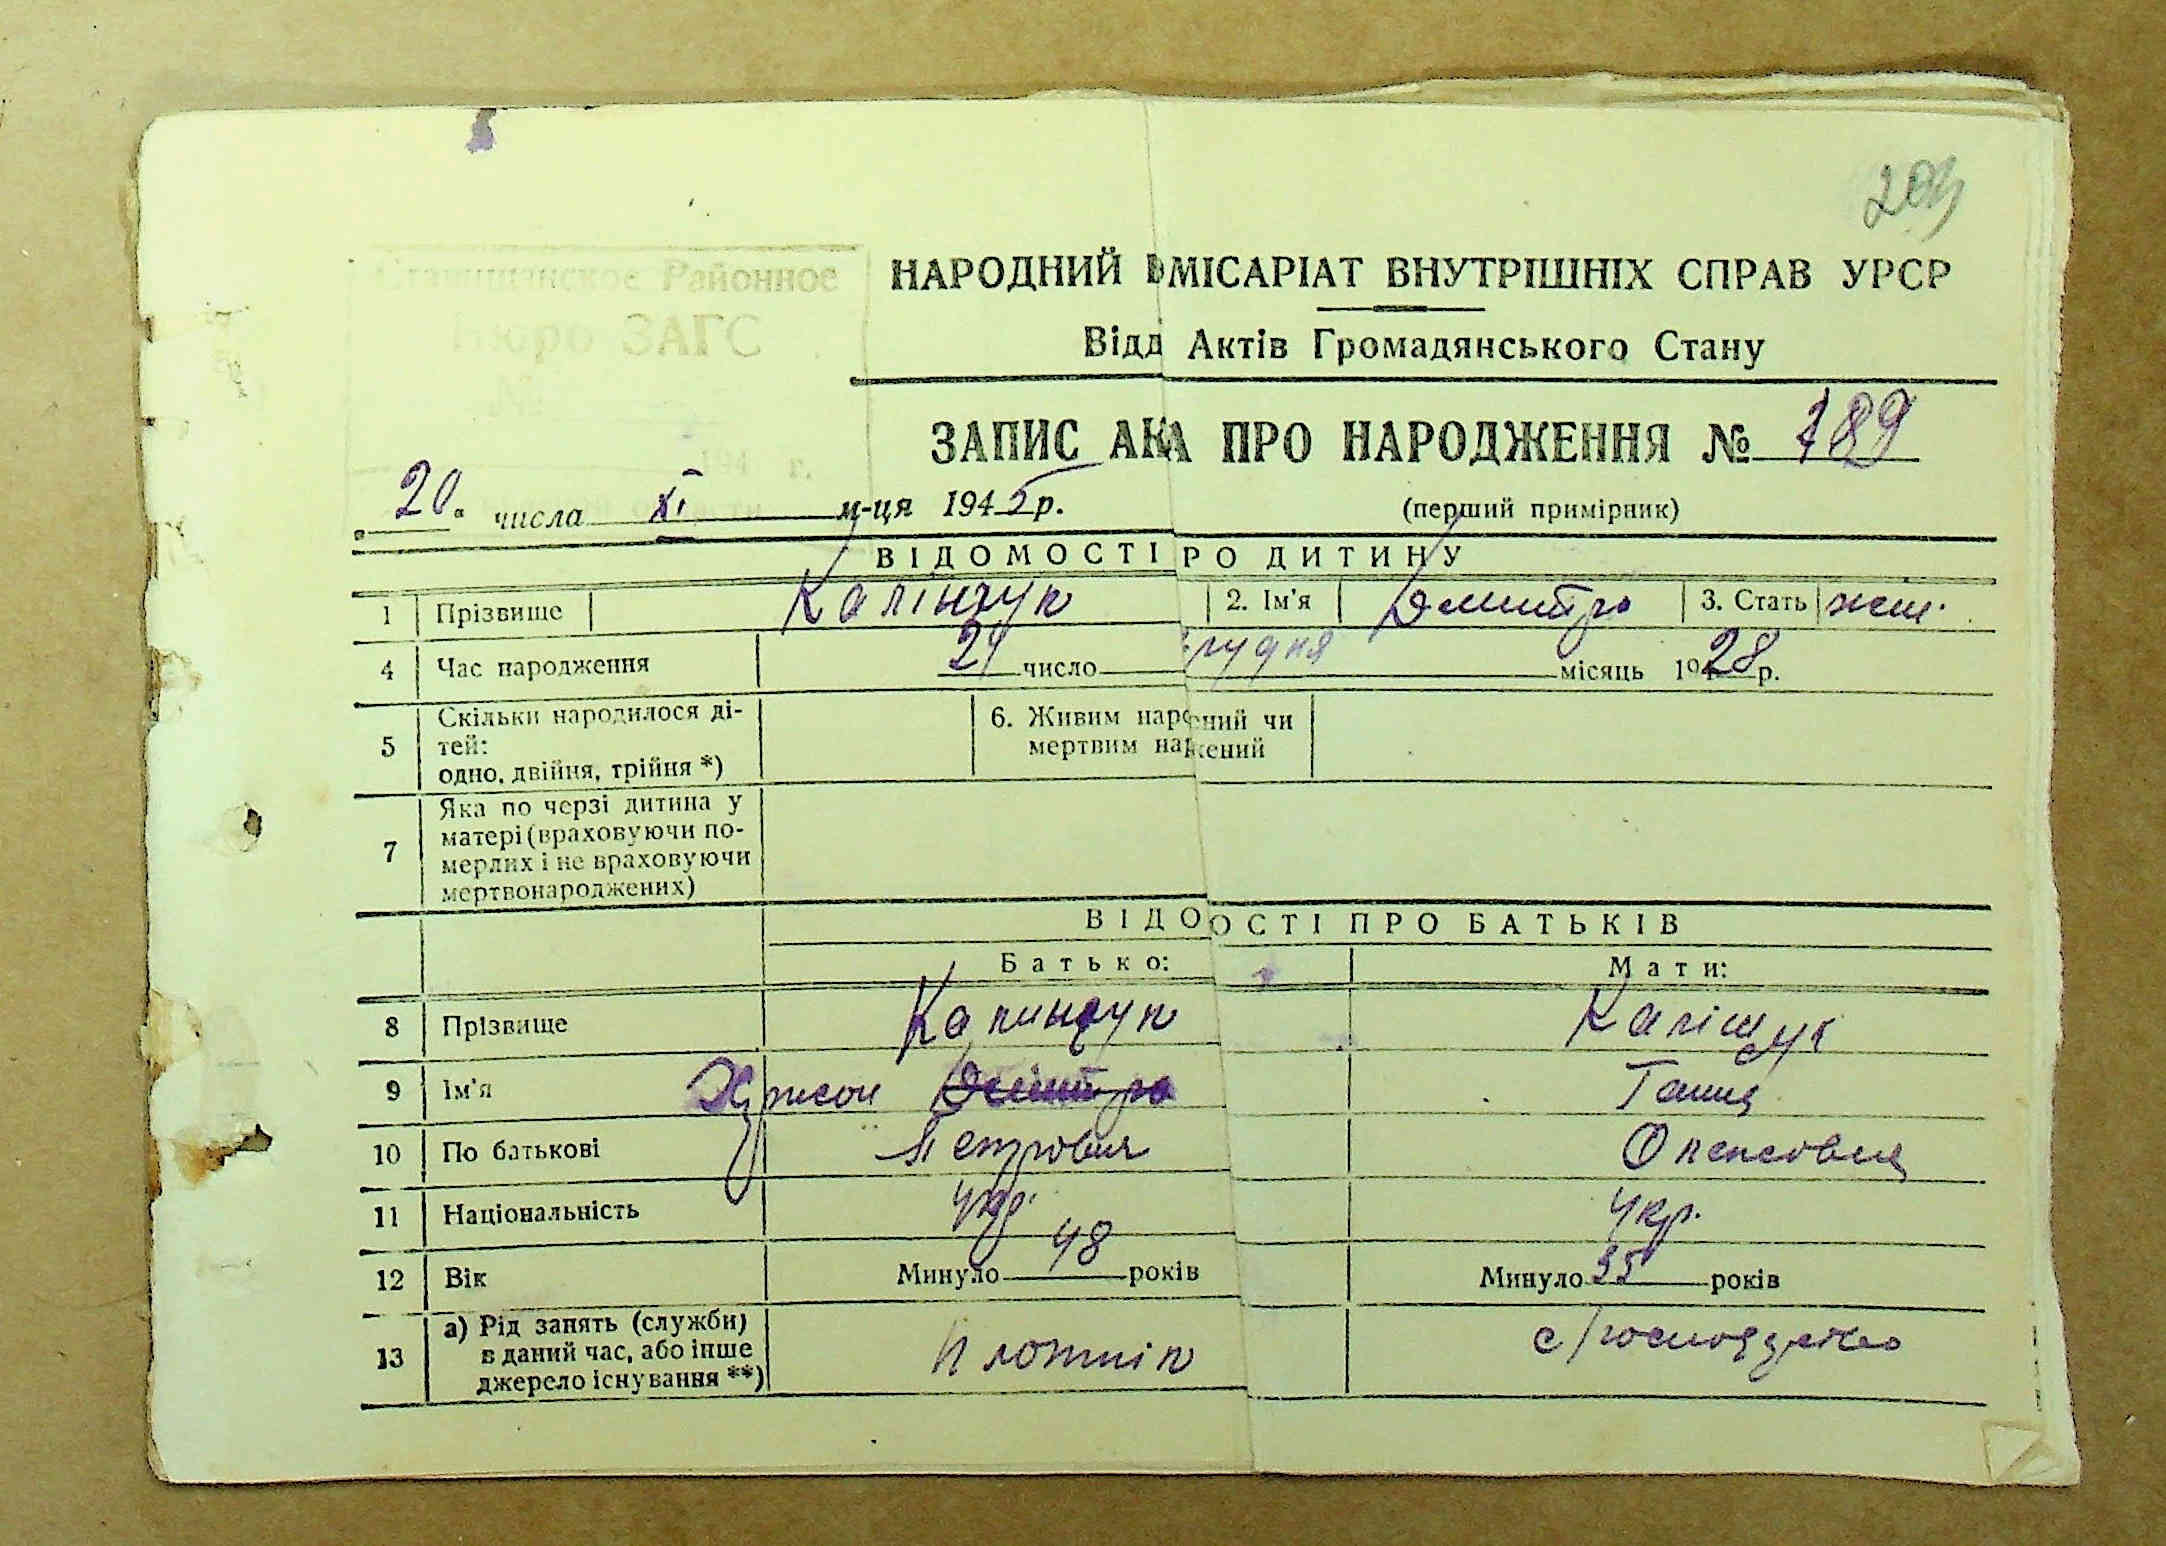 204
Ставищанское Районное
Бюро ЗАГС
№
194 г.
области
НАРОДНИЙ МІСАРІАТ ВНУТРІШНІХ СПРАВ УРСР
Відд Актів Громадянського Стану
ЗАПИС АКА ПРО НАРОДЖЕННЯ № 189
„20“ числа XI м-ця 1945 р.
(перший примірник)
ВІДОМОСТІ РО ДИТИНУ
1 Прізвище Калінчук 2. Ім'я Дмитро 3. Стать
4 Час народження 21 число грудня місяць 1928 р.
5 Скільки народилося ді-
тей:
одно, двійня, трійня *)
6. Живим нарений чи
мертвим нажений
7 Яка по черзі дитина у
матері (враховуючи по-
мерлих і не враховуючи
мертвонароджених)
ВІДООСТІ ПРО БАТЬКІВ
Батько: Мати:
8 Прізвище Калинчук Калінчук
9 Ім'я Дмитро Ганна
10 По батькові Петрович
11 Національність укр. укр.
12 Вік Минуло 48 років Минуло 35 років
13 а) Рід занять (служби)
в даний час, або інше
джерело існування **)
плотнік с/господарка